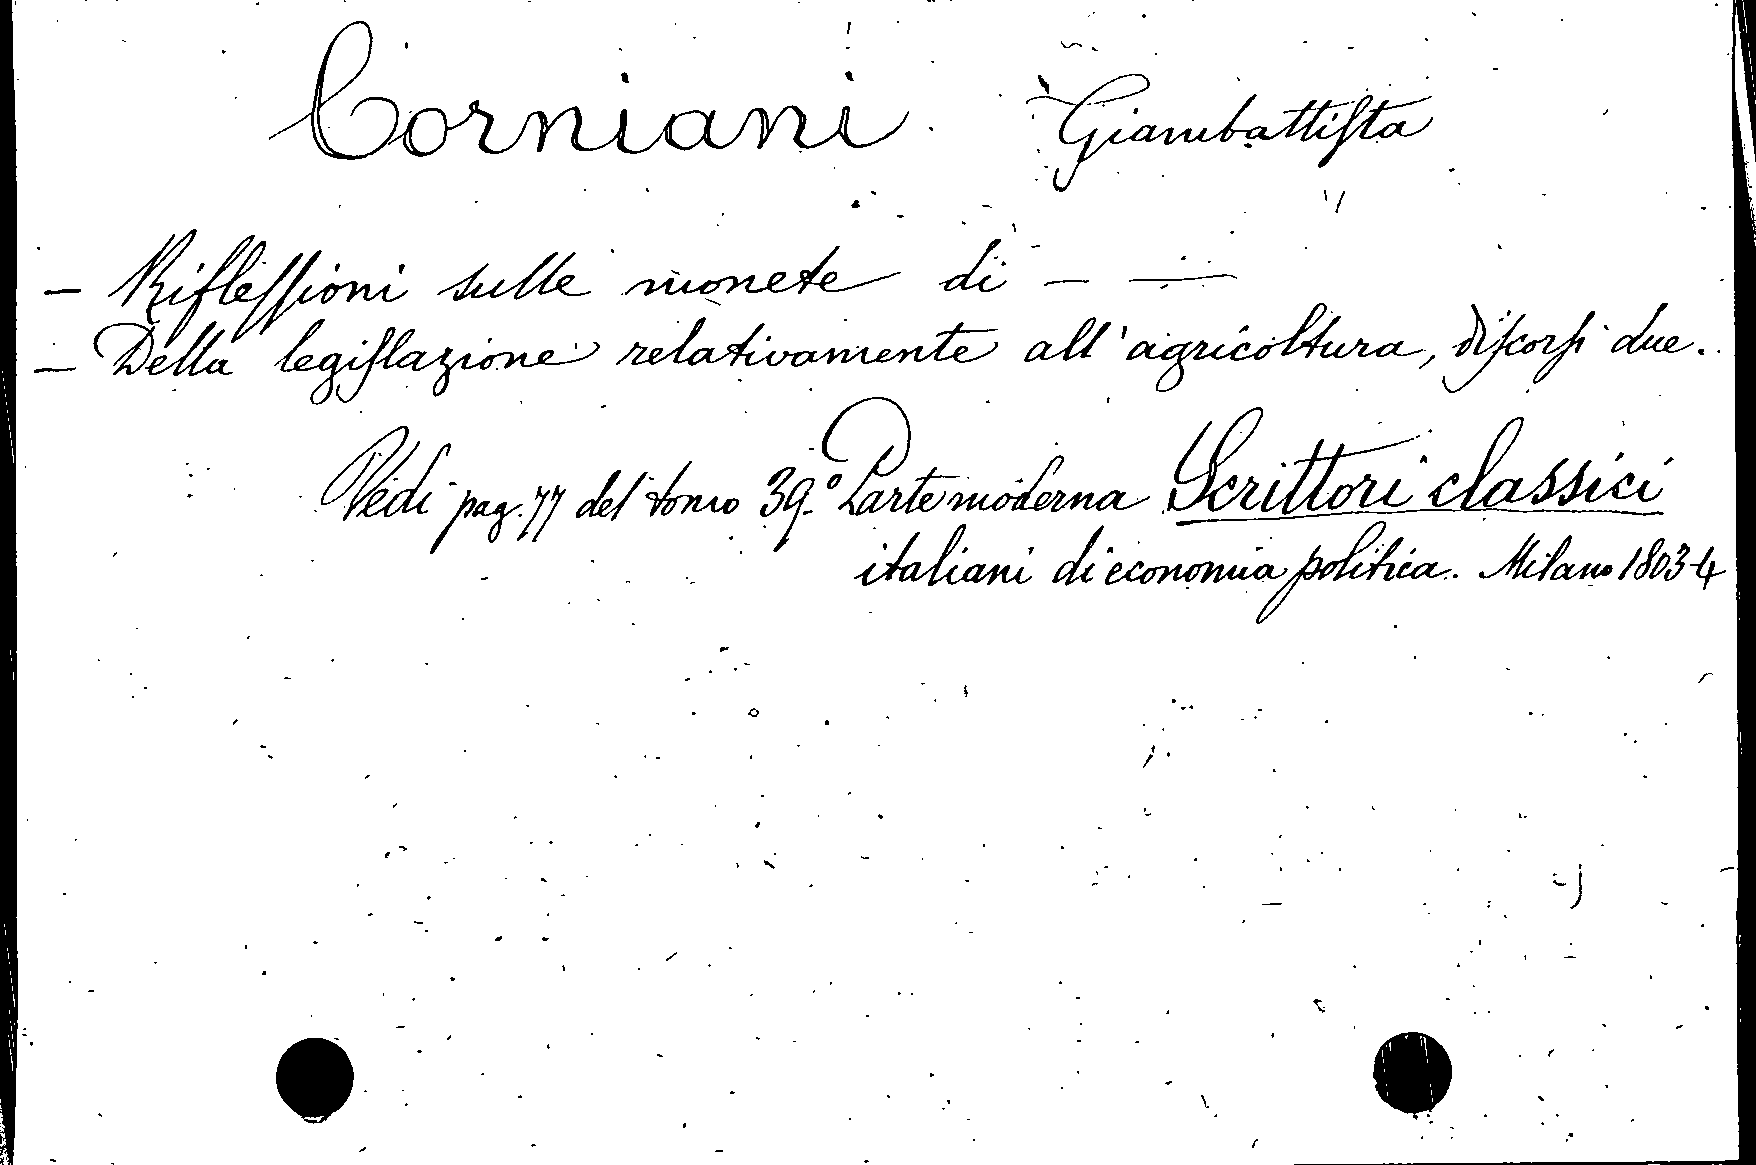 Corniani Giambattiſta
- Rifleſſioni sulle monete di - —
- Della legiſlazione relativamente all'agricoltura, diſcorſi due.
Vedi pag. 77 del tomo 39.º Parte moderna Scrittori classici
italiani di economia politica. Milano 1803-4